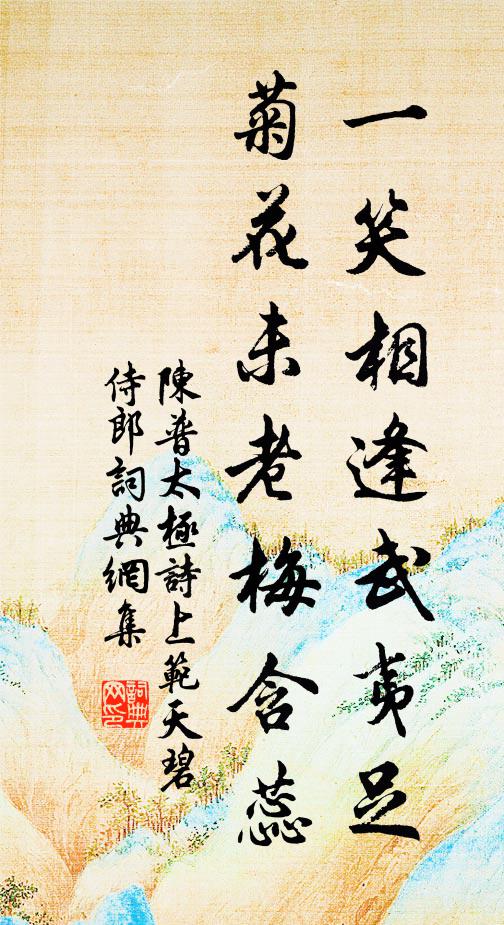 一笑相逢武夷足
菊花未老梅含蕊
陳普太極詩上範天碧
侍郎詞典網集
詞典